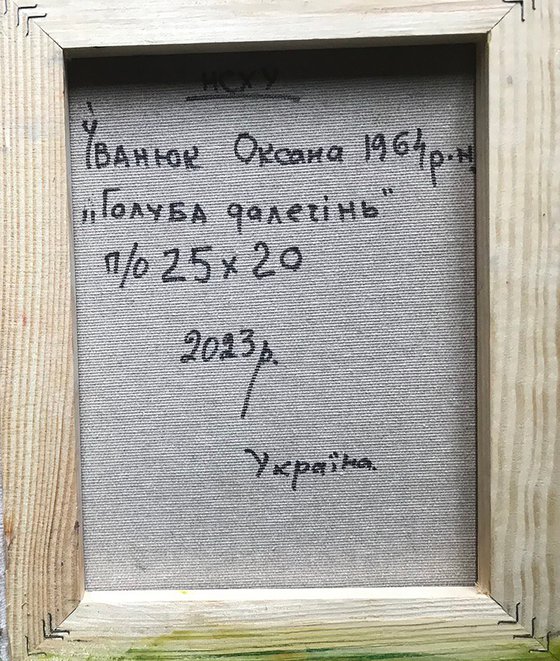 НСХУ
Іванюк Оксана 1964 р.н.
„Голуба далечінь"
п/о 25 x 20
2023 р.
Україна.